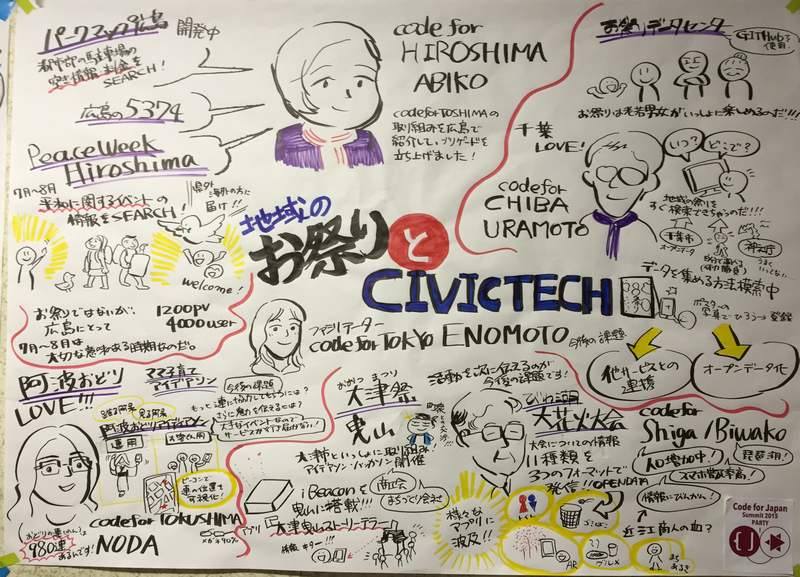 パークマップ広島 開発中
都市部の駐車場の
空き情報、料金を
SEARCH!
広島の5374
PeaceWeek
Hiroshima
7月~8月
平和に関するイベントの
情報をSEARCH!
県外
海外の方に
届け!!
welcome!
お祭りではないが、
広島にとって
7月~8月は
大切な意味ある時期なのだ。
1200PV
4000user
code for
HIROSHIMA
ABIKO
code for TOSHIMAの
取り組みを広島で
紹介して、ブリゲードを
立ち上げました!
お祭りデータセンター
GITHubを
使用
お祭りは老若男女がいっしょに楽しめるのだ!!!
千葉
LOVE!
いつ?
どこで?
code for
CHIBA
URAMOTO
地域の祭り
すぐ検索できちゃうのだ!!!
千葉市
オープンデータ
神社庁
データを集める方法模索中
ポスターの
登録
地域の
お祭り
と
CIVICTECH
ファシリテーター
code for TOKYO ENOMOTO
今後の課題
他サービスとの
連携
オープンデータ化
阿波おどり
LOVE!!!
ママ子育て
アイデアソン
今後の課題
もっと連に協力してもらうには?
さらに魅力を伝えるには?
大きなイベントなので
踊る阿呆
見る阿呆
運用
ビーコンで
連の位置を
可視化!
980連
あるんです!
code for TOKUSHIMA
NODA
おおつ まつり
大津祭
曳山
活動を次に伝えるが
今後の課題です!
大津市といっしょに取り組み
アイデアソン・ハッカソン開催
iBeaconを
曳山に搭載!!!
商工会
まちづくり会社
アプリ
大津曳山ストーリーテラー
びわ湖
大花火大会
大会についての情報
11種類を
3つのフォーマットで
発信!! OPENDATA
様々な
アプリに
波及!!
トイレ
ごみばこ
AR
グルメ
code for
Shiga/Biwako
人口増加中!
琵琶湖!
スマホ普及率高!
情報にびんかん!
近江商人の血?
Code for Japan
Summit 2015
PARTY